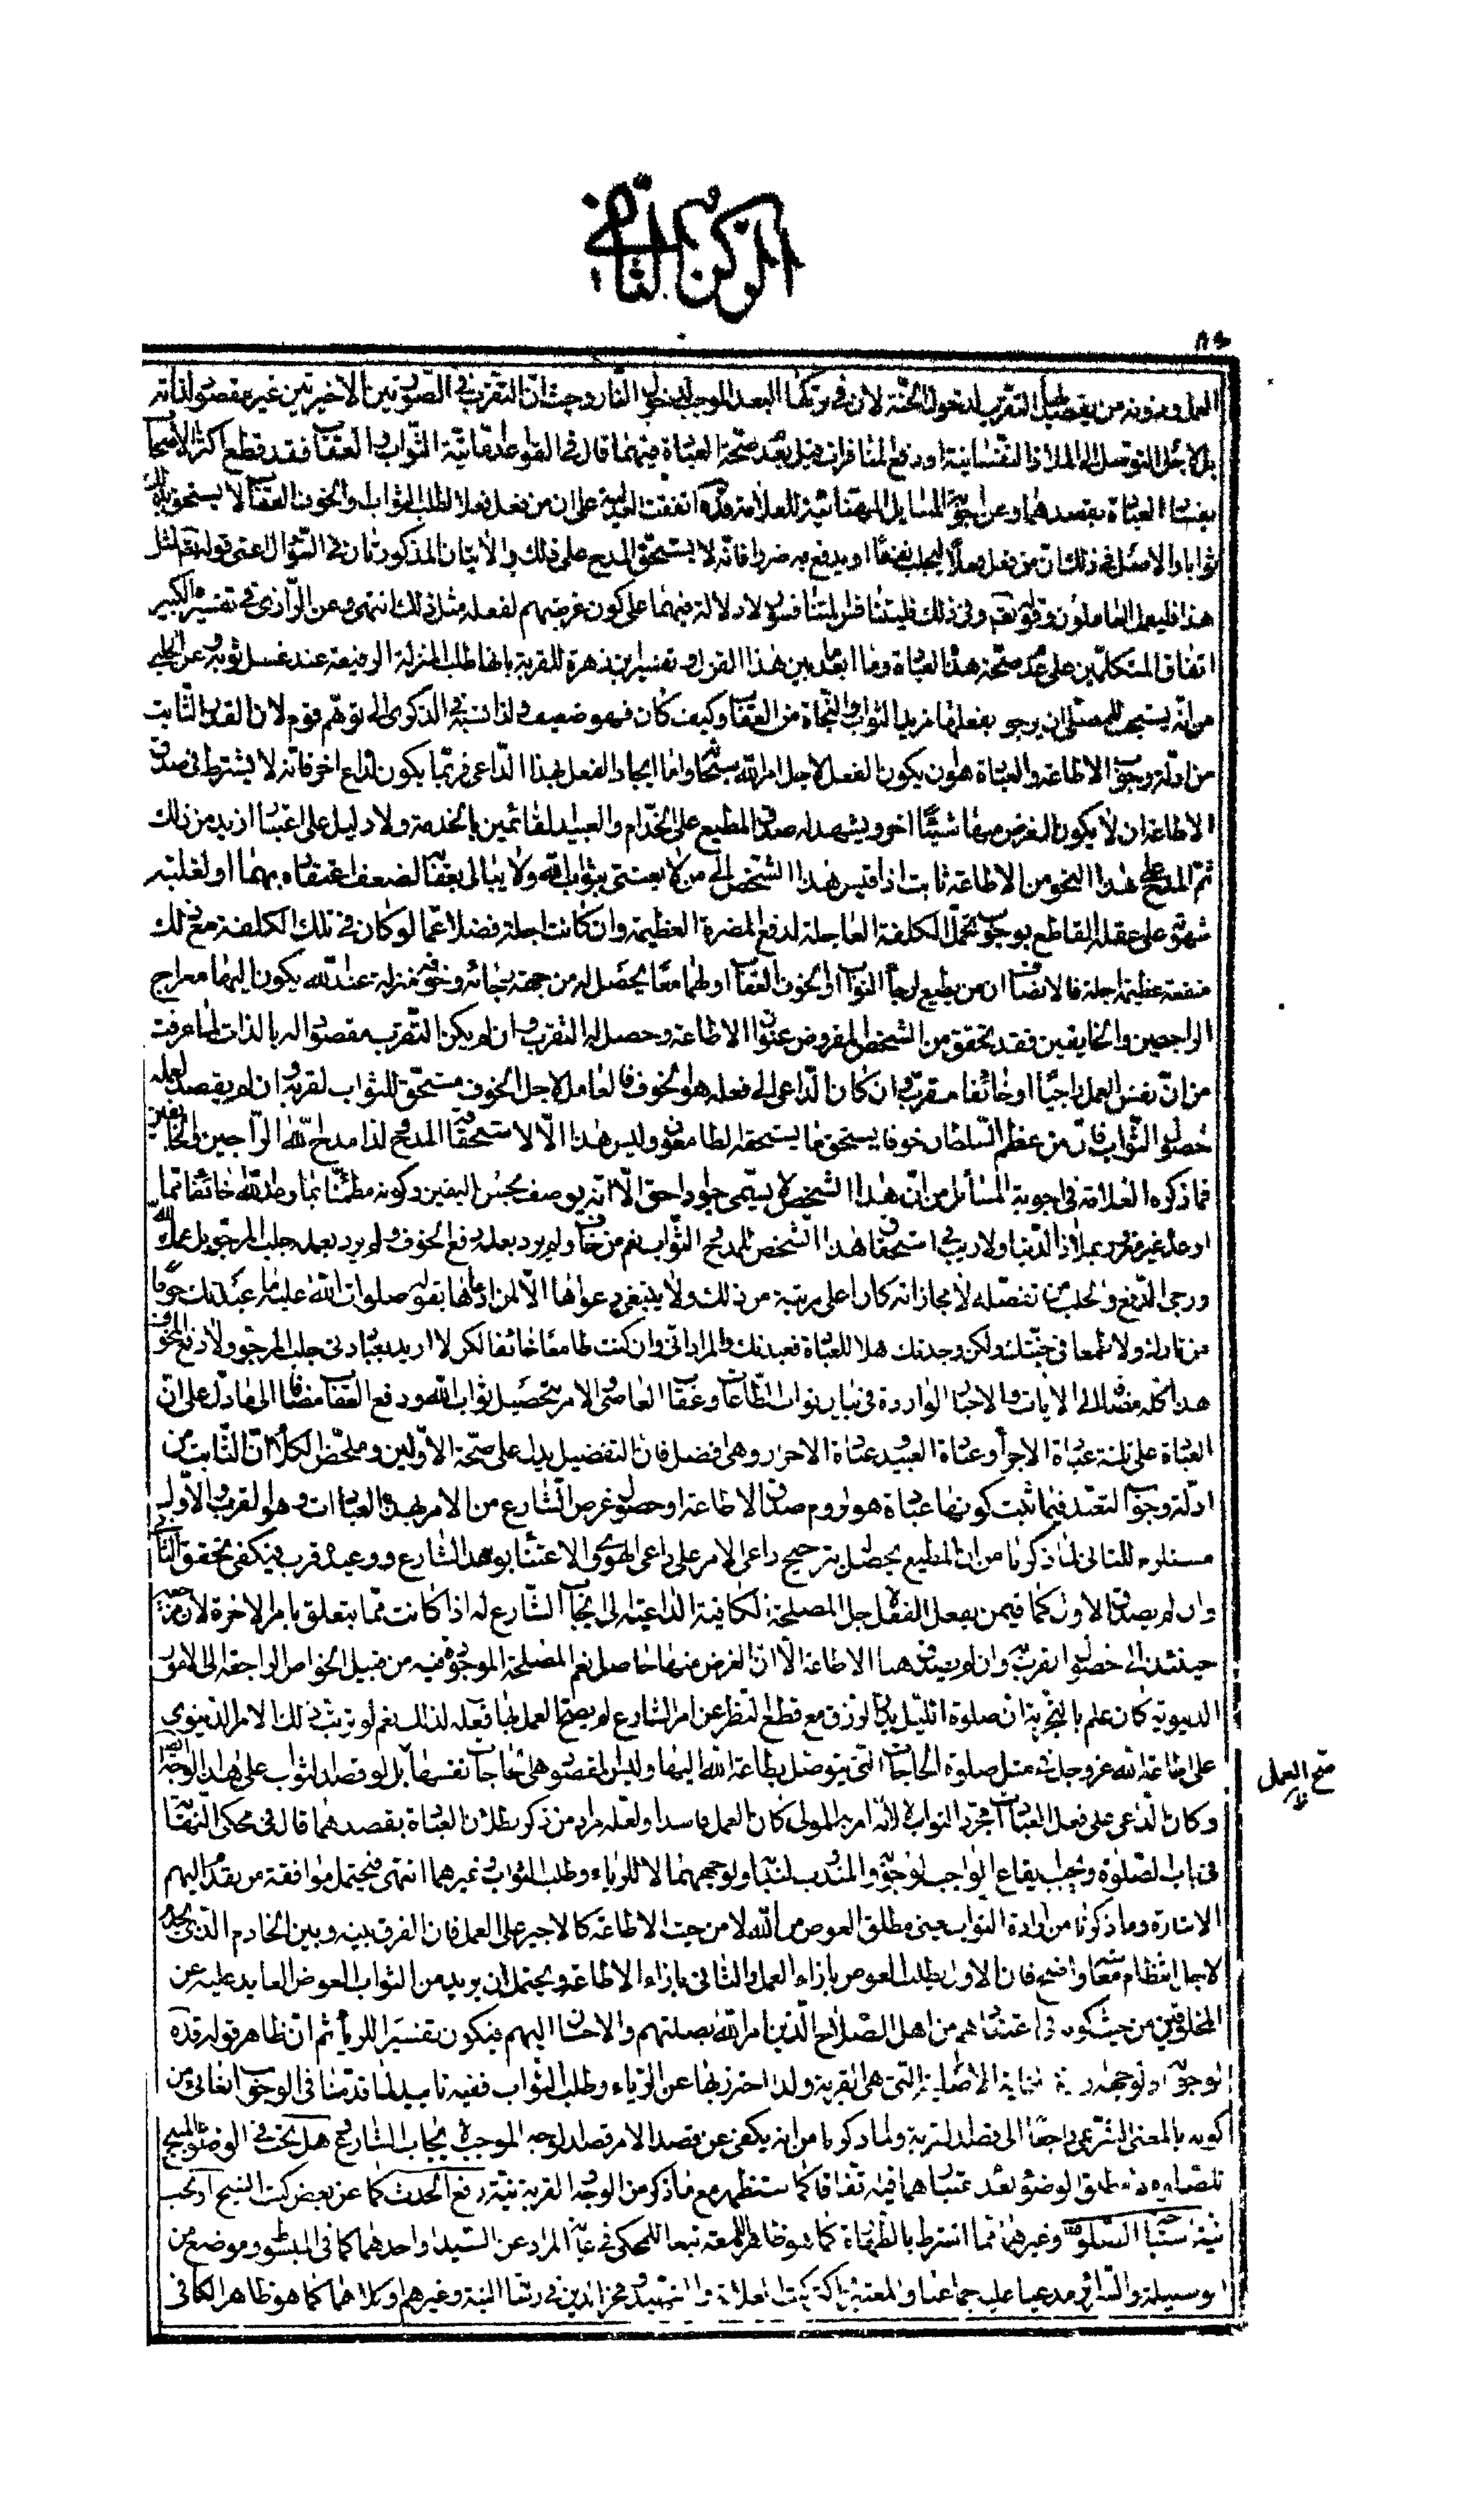 الركن الثاني
٨٤
العمل وبدونه من يقصد بفعله التقرب لدخول الجنة لان في تركها البعد الموجب لدخول النار وحيث ان التقرب في الصورتين الاخيرتين غير مقصود لذاته
بل لاجل التوصل الى الملاذ النفسانية او دفع المنافرات قيل بعدم صحة العبادة فيهما قال في القواعد فانية الثواب والعقاب فقد قطع اكثر الاصحاب
بفساد العبادة بقصدهما وعن اجوبة المسايل المهنائية للعلامة قده اتفقت العدلية على ان من فعل فعلا لطلب الثواب والخوف العقاب لا يستحق بذلك
ثوابا والاصل في ذلك ان من فعل فعلا ليجلب نفعا او يدفع به ضررا فانه لا يستحق المدح على ذلك والايتان المذكورتان في السؤال اعنى قوله تعم لمثل
هذا فليعمل العاملون وقوله تعم وفي ذلك فليتنافس المتنافسون لا دلالة فيهما على كون غرضهم لفعله مثل ذلك انتهى وعن الرازي في تفسيره الكبير
اتفاق المتكلمين على عدم صحة هذه العبادة وما ابعد ما بين هذا القول وتفسير ابن زهرة للقربة بانها طلب المنزلة الرفيعة عند غسل ثوبه وعن الحلبي
من انه يستحب للمصلى ان يرجو بفعلها مزيد الثواب والنجاة من العقاب وكيف كان فهو ضعيف ولذا نسبه في الذكرى الى توهم قوم لان القدر الثابت
من ادلة وجوب الاطاعة والعبادة هو ان يكون الفعل لاجل امر الله سبحانه واما ايجاد الفعل لهذا الداعى فربما يكون لداع اخر فانه لا يشترط في صدق
الاطاعة ان لا يكون الغرض منها شيئا اخر ويشهد له صدق المطيع على الخدام والعبيد لقائمين بالخدمة ولا دليل على اعتبار ازيد من ذلك
ثم المدح على هذا النحو من الاطاعة ثابت اذا قيس هذا الشخص الى من لا يعتنى بثواب الله ولا يبالى بعقابه لضعف اعتقاده بهما او لغلبة
شهوته على عقله القاطع بوجوب تحمل الكلفة العاجلة لدفع المضرة العظيمة وان كانت اجلة فضلا عما لو كان في تلك الكلفة مع ذلك
منفعة عظيمة اجلة فالانصاف ان من يطيع لرجاء الثواب او لخوف العقاب او لهما معا يحصل له من جهة رجائه وخوفه منزلة عند الله يكون اليهما معراج
الراجين والخايفين فقد تحقق من الشخص المفروض عنوان الاطاعة وحصل له التقرب وان لم يكن التقرب مقصودا له بالذات لما عرفت
من ان نفس العمل راجيا او خائفا مقرب وان كان الداعى الى فعله هو الخوف فالعامل لاجل الخوف مستحق للثواب لقربه وان لم يقصد بعمله
حصول الثواب فان من عظم السلطان خوفا يستحق ما يستحقه الطامعون وليس هذا الا لاستحقاقه المدح لذا مدح الله الراجين والخائفين
فما ذكره العلامة في اجوبة المسائل من ان هذا الشخص لا يسمى جوادا حق الا انه يوصف بحسن اليقين وكونه مطمئنا بما وعد الله خائفا مما
اوعد غير مغرور بملاذ الدنيا ولا ريب في استحقاق هذا الشخص للمدح الثواب نعم من خاف ولم يرد بعمله دفع الخوف ولم يرد بعمله جلب المرجو بل عمل لله
ورجى الدفع والجلب من تفضله لا مجازاته كان اعلى مرتبة من ذلك ولا ينبغى دعواها الا لمن ادعاها بقوله صلوات الله عليه ما عبدتك خوفا
من نارك ولا طمعا في جنتك ولكن وجدتك اهلا للعبادة فعبدتك والمراد انى وان كنت طامعا خائفا لكن لا اريد بعبادتى جلب المرجو ولا دفع المخوف
هذا كله مضافا الى الايات والاخبار الواردة في بيان ثواب الطاعات وعقاب المعاصى والامر بتحصيل ثواب الله ودفع العقاب مضافا الى ما دل على ان
العبادة على ثلثة عبادة الاجراء وعبادة العبيد وعبادة الاحرار وهى افضل فان التفضيل يدل على صحة الاولين وملخص الكلام ان الثابت من
ادلة وجوب التعبد فيما ثبت كونها عبادة هو لزوم صدق الاطاعة او حصول غرض الشارع من الامر بهذه العبادات وهو القرب والاول
مستلزم للثانى لما ذكرنا من ان المطيع يحصل بترجيح داعى الامر على داعى الهوى والاعتناء بوعد الشارع ووعيده قرب فيكفى تحقق الثانى
وان لم يصدق الاول كما فيمن يفعل الفعل لاجل المصلحة الكافية الداعية الى ايجاب الشارع له اذا كانت مما يتعلق بامر الاخرة لان مرجعه
حينئذ الى حصول القرب وان لم يصدق هنا الاطاعة الا ان الغرض منها حاصل نعم المصلحة الموجودة فيه من قبيل الخواص الراجعة الى الامور
الدنيوية كان علم بالتجربة ان صلوة الليل يدر الرزق مع قطع النظر عن امر الشارع لم يصح العمل بها فعله لذلك نعم لو ترتب ذلك الامر الدنيوى
على طاعة الله عز وجل مثل صلوة الحاجات التى يتوصل بطاعة الله اليها وليس المقصود هى الحاجات نفسها بل لو قصد الثواب على هذا الوجه
صح العمل
وكان الداعى على فعل العبادات مجرد الثواب لا انه امر به المولى كان العمل فاسدا ولعله مراد من ذكر بطلان العبادة بقصدهما قال في محكى النهاية
في باب الصلوة ويجب ايقاع الواجب لوجوبه والمندب لندبه او لوجههما لا للرياء وطلب الثواب وغيرهما انتهى فيحتمل موافقة من تقدم اليهم
الاشارة وما ذكرنا من ارادة الثواب يعنى مطلق العوض من الله لا من حيث الاطاعة كالاجير على العمل فان الفرق بينه وبين الخادم الذى يخدم
واضح فان الاول يطلب العوض بازاء العمل والثانى بازاء الاطاعة ويحتمل ان يريد من الثواب العوض العايد عليه عن
المخلوقين من اهل الصلاح الذين امر الله بصلتهم والاحسان اليهم فيكون تفسيرا للرياء ثم ان ظاهر قوله قده
لوجوبه او لوجهه الغاية الاصلية التى هى القربة ولذا احترز بها عن الرياء وطلب الثواب ففيه تاييد لما قدمنا في الوجوب الغائى من
كونه بالمعنى الشرعى راجعا الى قصد القربة ولما ذكرنا من انه يكفى عن قصد الامر قصد الوجه الموجب لايجاب الشارع هل يجب في الوضوء المبيح
للصلوة مطلق الوضوء بعد اعتبارهما فيه اتفاقا كما ستظهر مع ما ذكر من الوجه القربة نية رفع الحدث كما عن بعض كتب الشيخ او يجب
نية استباحة الصلوة وغيرها مما اشترط بالطهارة كما هو ظاهر اللمعة تبعا للمحكى في عبارة المراد عن السيد او احدهما كما في المبسوط وموضع من
الوسيلة والسرائر مدعيا عليه اجماعنا والمعتبر واكثر كتب العلامة والشهيد وفخر الدين في رسالة النية وغيرهم او كلاهما كما هو ظاهر الكافى